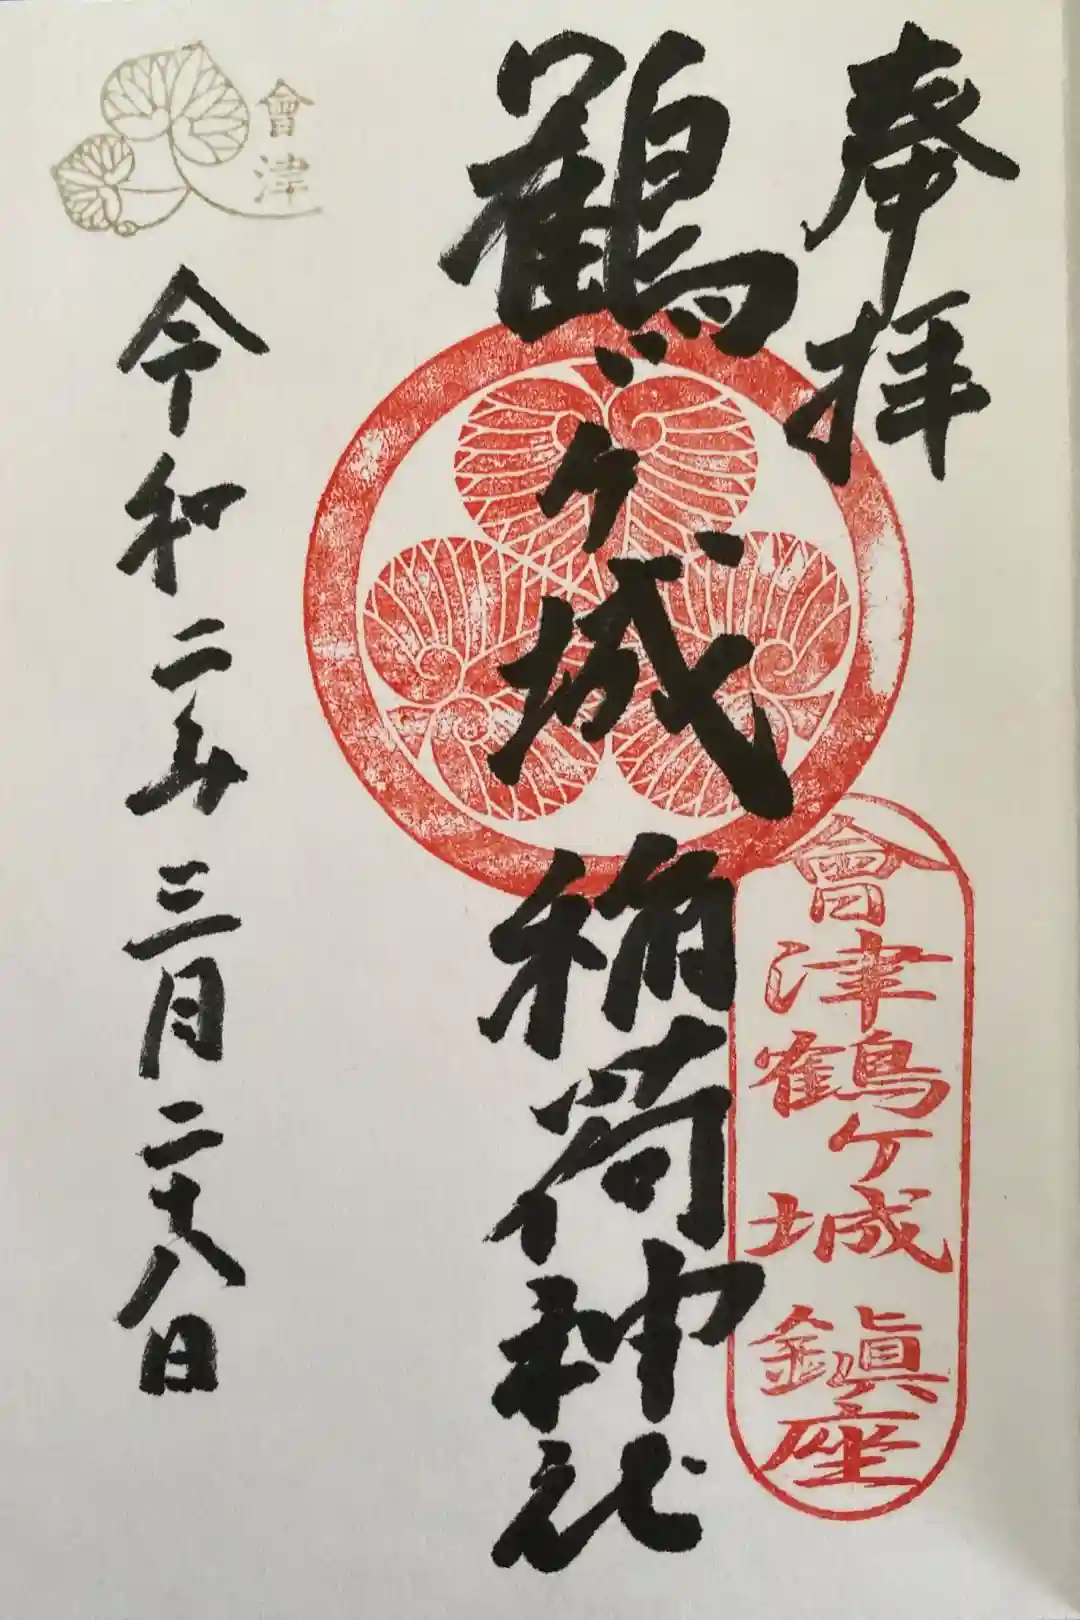 奉拝
會津鶴ヶ城鎮座
鶴ヶ城稲荷神社
會津
令和二年三月二十八日